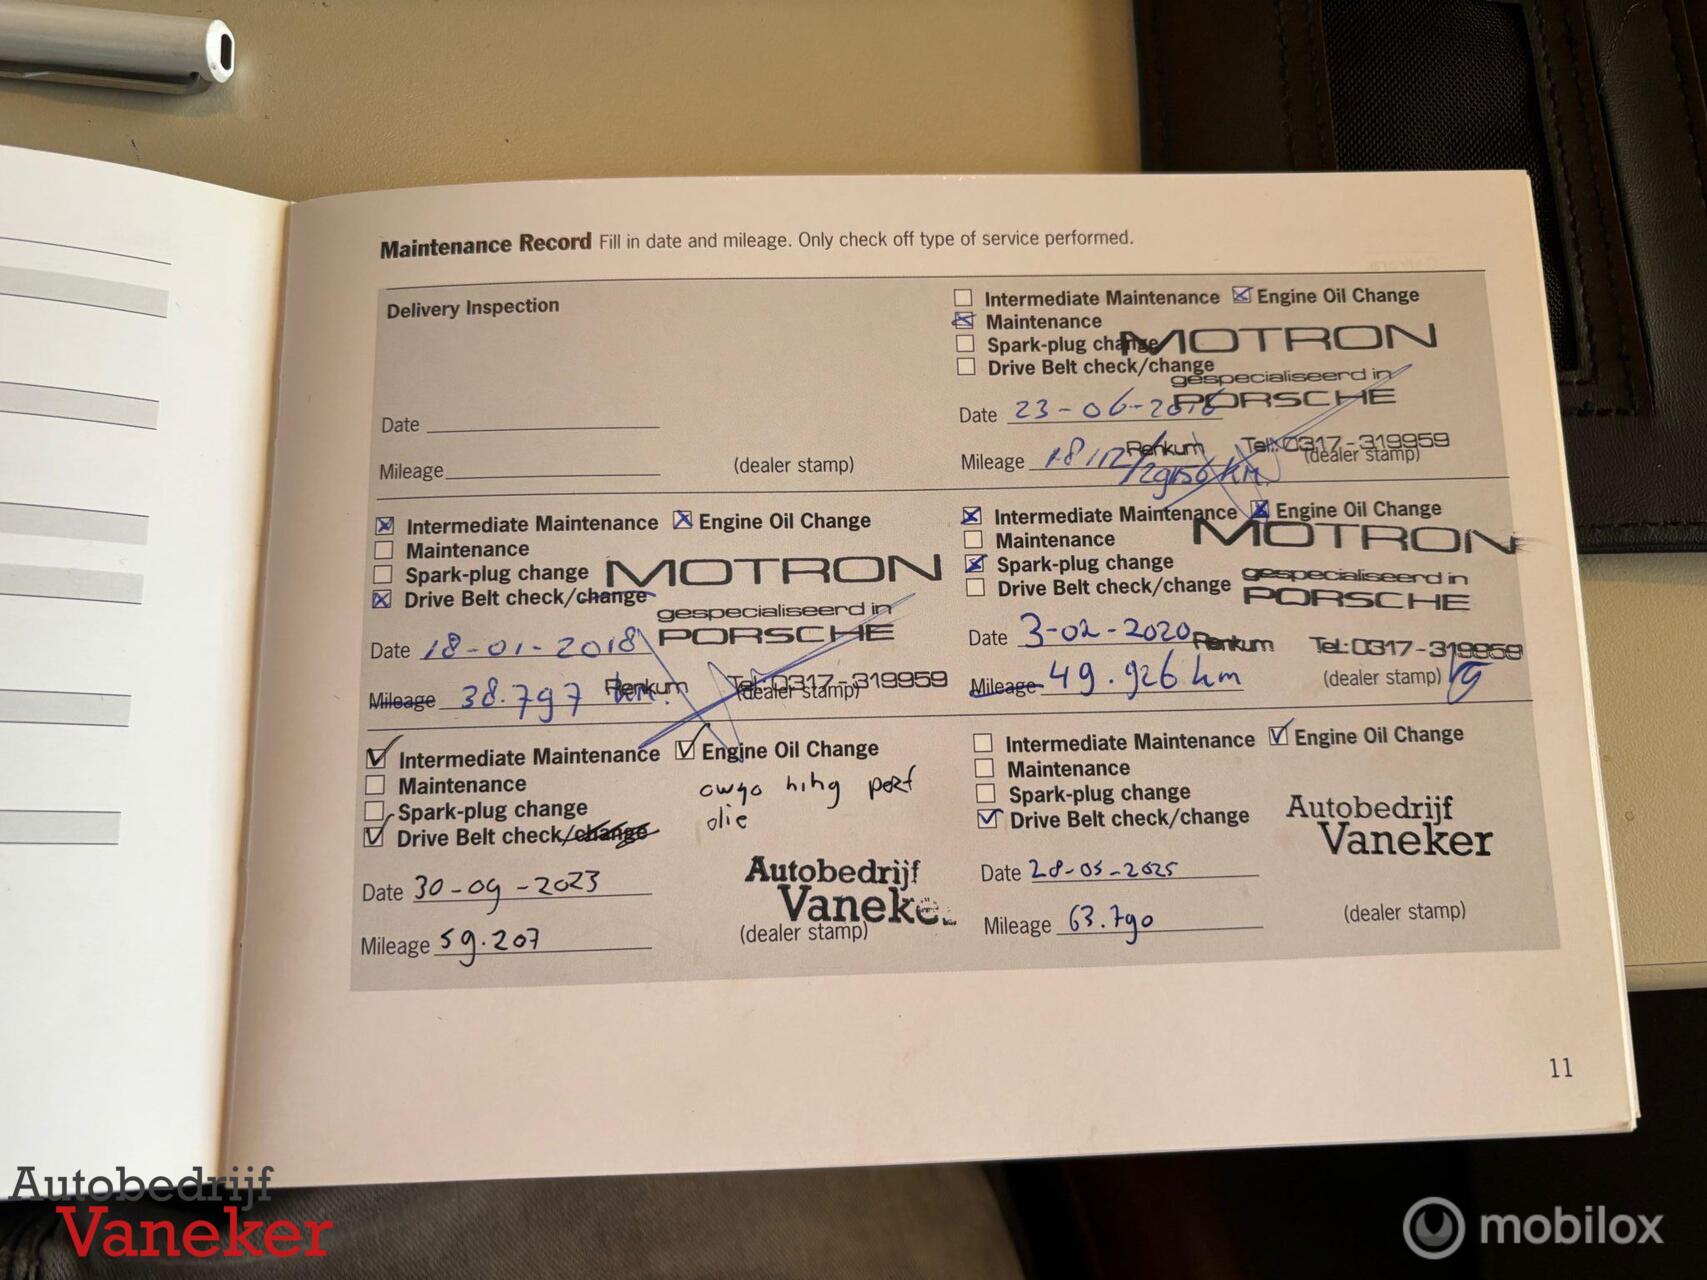 Maintenance Record Fill in date and mileage. Only check off type of service performed.
Delivery Inspection
Date
Mileage
(dealer stamp)
Intermediate Maintenance Engine Oil Change
Maintenance
Spark-plug change
Drive Belt check/change
MOTRON
gespecialiseerd in
PORSCHE
Date 23-06-2016
Renkum Tel: 0317-319959
Mileage 18112/29156 km.
(dealer stamp)
Intermediate Maintenance Engine Oil Change
Maintenance
Spark-plug change
Drive Belt check/change
MOTRON
gespecialiseerd in
PORSCHE
Date 18-01-2018
Renkum Tel: 0317-319959
Mileage 38.797 km.
(dealer stamp)
Intermediate Maintenance Engine Oil Change
Maintenance
Spark-plug change
Drive Belt check/change
MOTRON
gespecialiseerd in
PORSCHE
Date 3-02-2020
Renkum Tel: 0317-319959
Mileage 49.926 km
(dealer stamp)
Intermediate Maintenance Engine Oil Change
Maintenance
Spark-plug change
Drive Belt check/change
olie
Autobedrijf
Vaneker
Date 30-09-2023
Mileage 59.207
(dealer stamp)
Intermediate Maintenance Engine Oil Change
Maintenance
Spark-plug change
Drive Belt check/change
Autobedrijf
Vaneker
Date 28-05-2025
Mileage 63.790
(dealer stamp)
11
Autobedrijf
Vaneker
mobilox